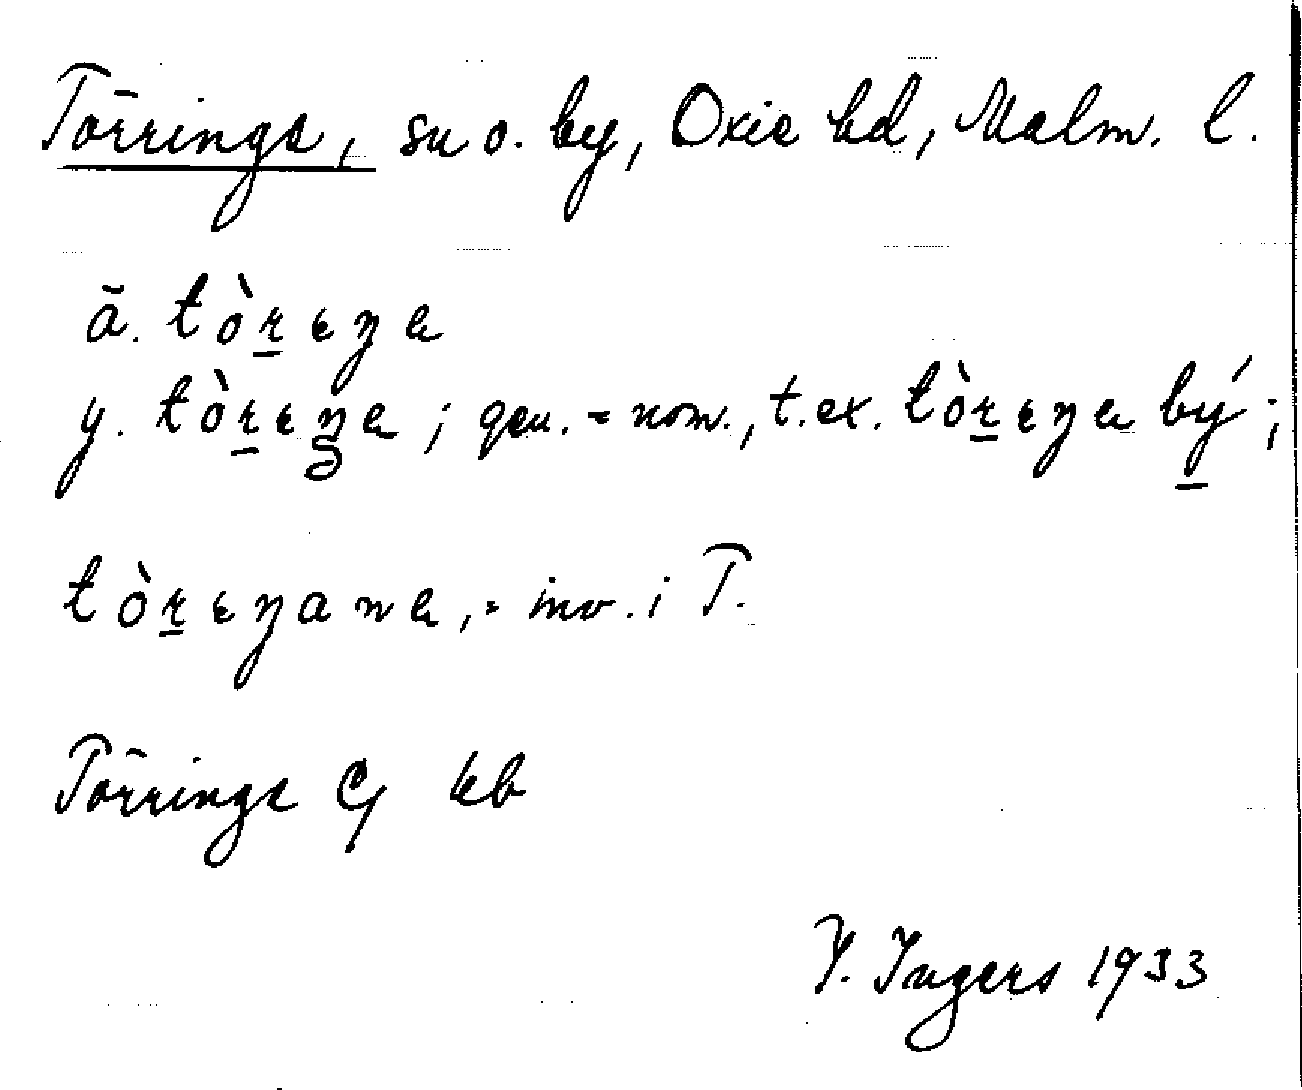 Törringe, sn o. by, Oxie hd, Malm. l.
ä. tòr̲ɛŋa
y. tòr̲ɛŋa; gen. = nom., t.ex. tòr̲ɛŋa bý̲;
tòr̲ɛŋana, = inv. i T.
Törringe Cy kb
I. Ingers 1933